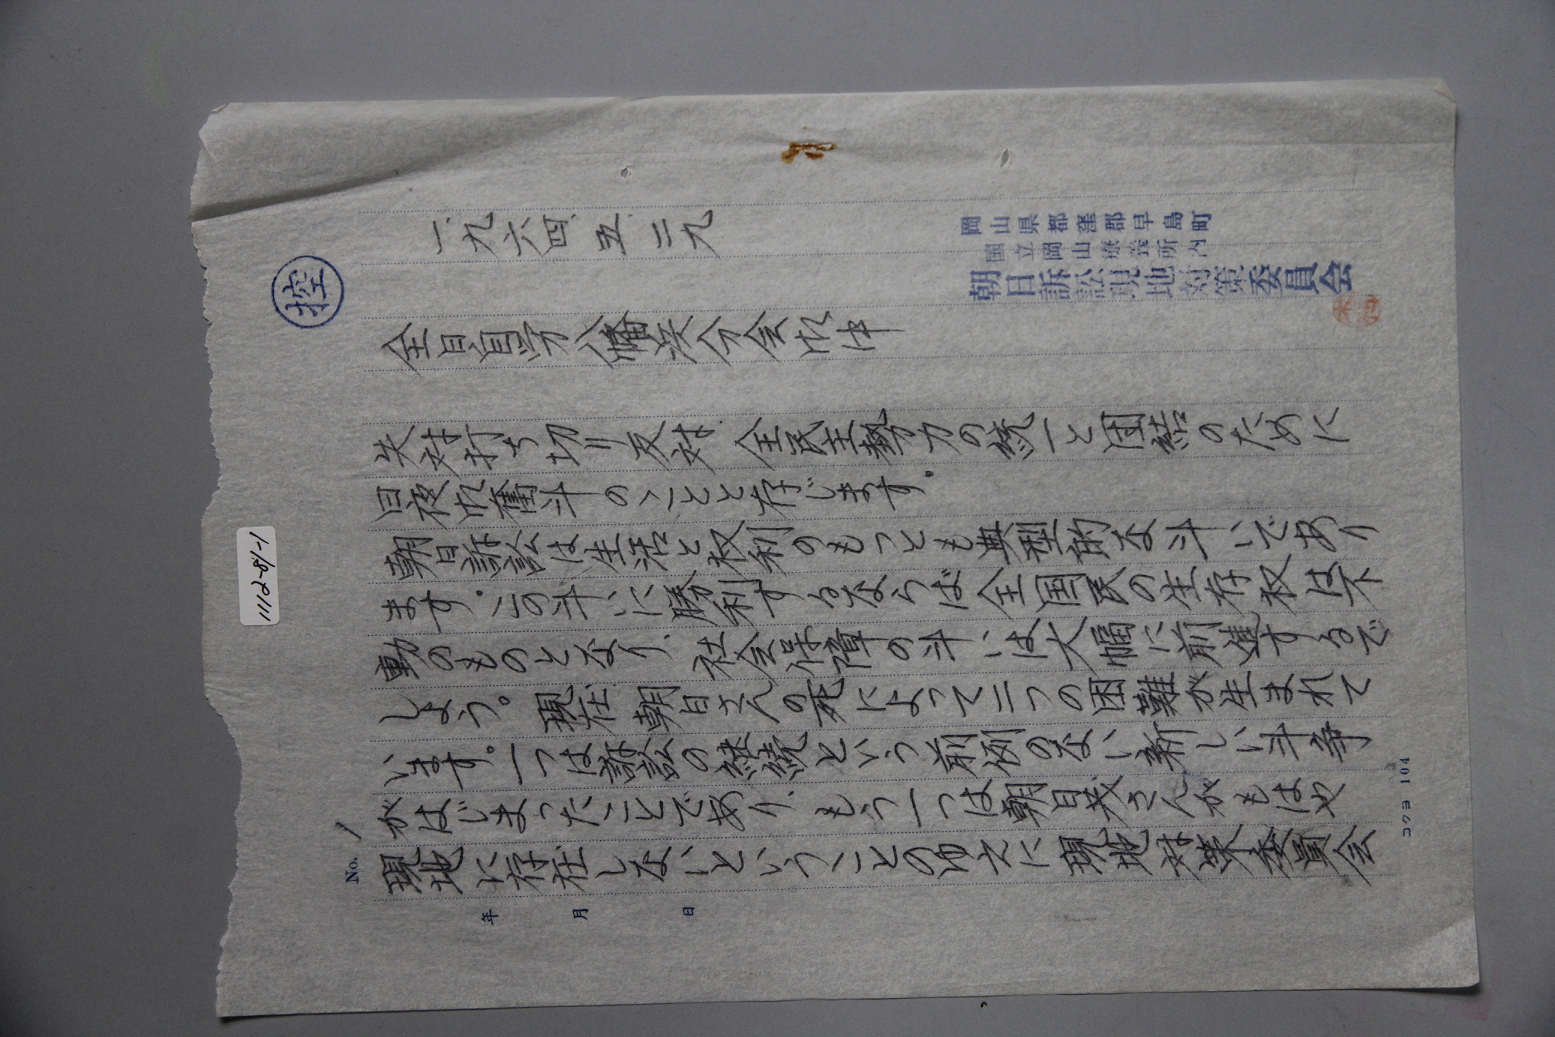 控
一九六四、五、二九
岡山県都窪郡早島町
国立岡山療養所内
朝日訴訟現地対策委員会
全日自労八幡分会御中
失対打ち切り反対、全民主勢力の統一と団結のために
日夜御奮斗のことと存じます。
朝日訴訟は生活と权利のもっとも典型的な斗いであり
ます。この斗いに勝利するならば全国民の生存权は不
動のものとなり、社会保障の斗いは大幅に前進するで
しょう。現在朝日さんの死によって二つの困難が生まれて
います。一つは訴訟の継続という前例のない新しい斗争
がはじまったことであり、もう一つは朝日茂さんがもはや
現地に存在しないということのゆえに現地対策委員会
No. 1
年 月 日
コクヨ 104
1112-84-1